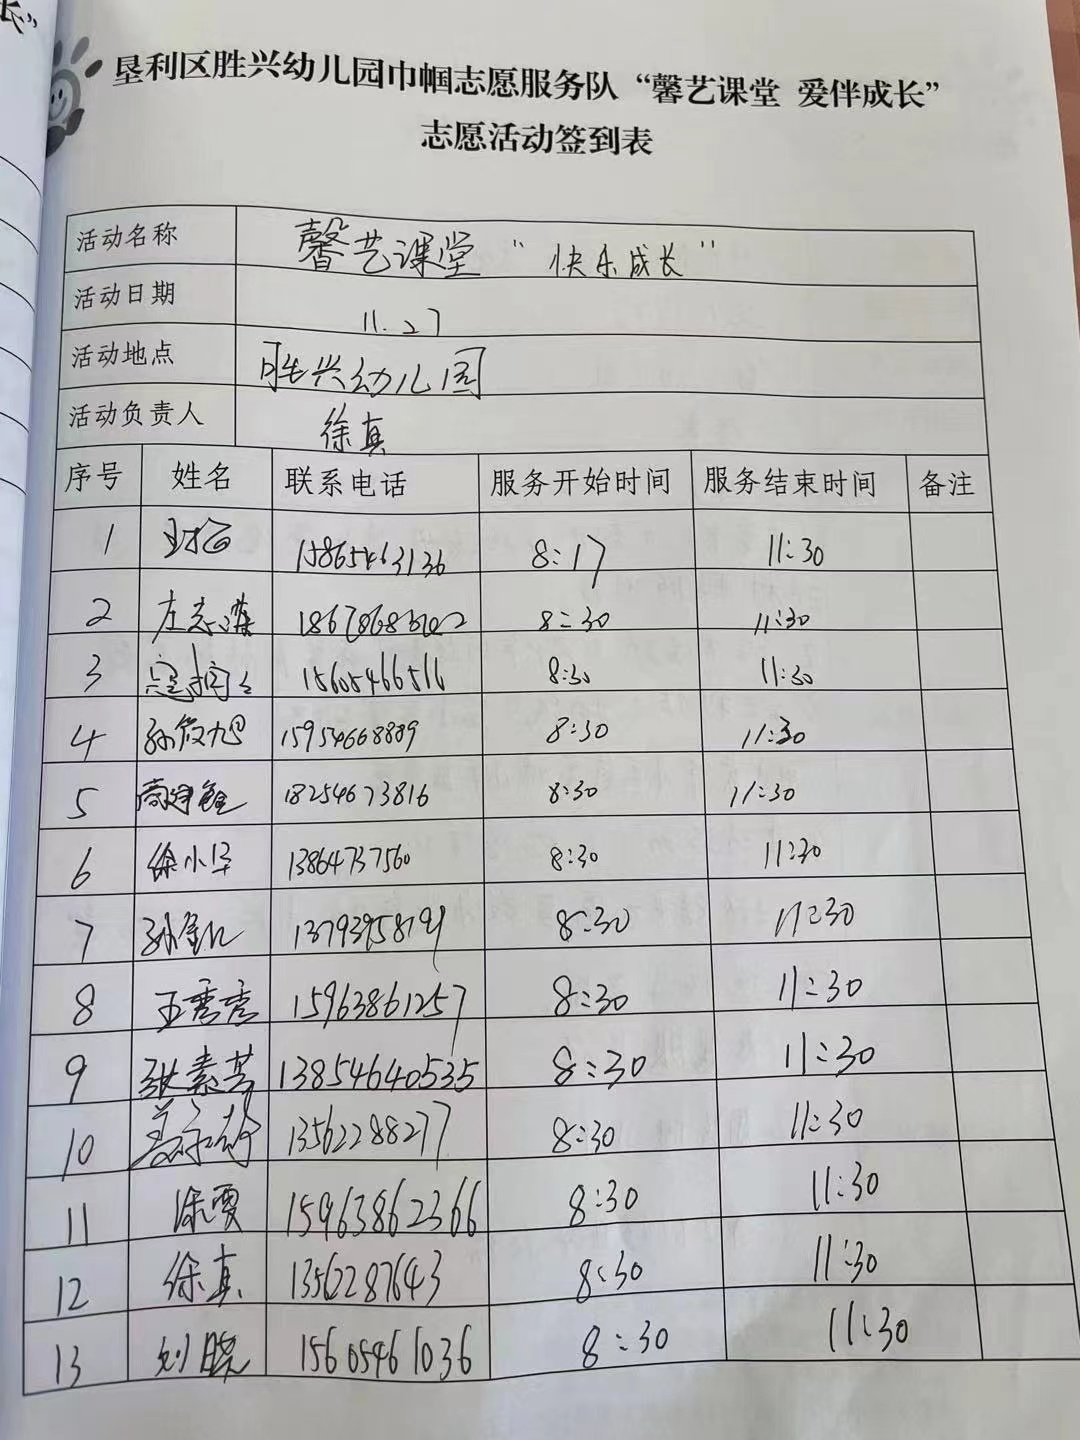 长”
垦利区胜兴幼儿园巾帼志愿服务队“馨艺课堂 爱伴成长”
志愿活动签到表
活动名称 馨艺课堂“快乐成长”
活动日期 11.27
活动地点 胜兴幼儿园
活动负责人 徐真
序号 姓名 联系电话 服务开始时间 服务结束时间 备注
1 15865463136 8:17 11:30
2 8:30 11:30
3 15605466516 8:30 11:30
4 15954668889 8:30 11:30
5 18254673816 8:30 11:30
6 徐小华 13864737560 8:30 11:30
7 8:30 11:30
8 王秀秀 15963861257 8:30 11:30
9 张素芳 13854640535 8:30 11:30
10 13562288277 8:30 11:30
11 15963862366 8:30 11:30
12 徐真 13562287643 8:30 11:30
13 刘晓 15605461036 8:30 11:30